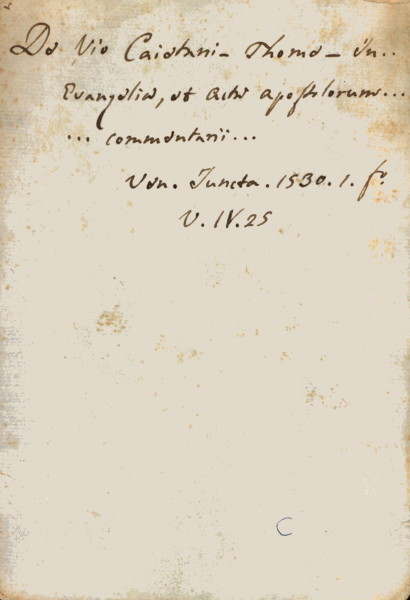 De Vio Caietani - Thome - in..
Evangelia, et Acta apostolorum...
... commentarii...
Ven. Juncta. 1530. 1. fo.
V. IV. 25
C